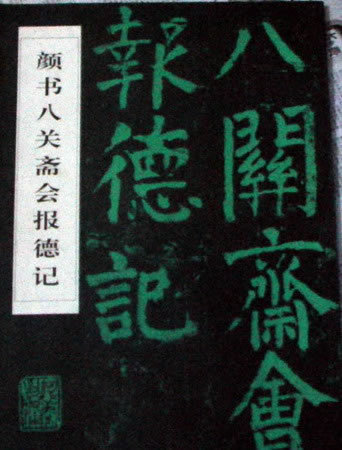 颜书八关斋会报德记
八關齋會
報德記